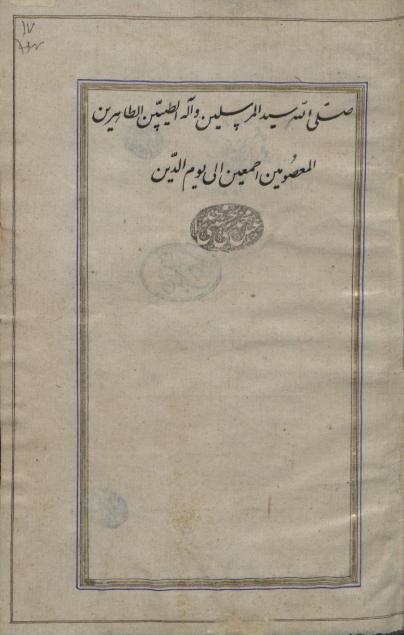 ۱۷
صلّی اللّه سید المرسلین وآله الطیبّین الطاهرین
المعصُومین اجمعین الی یوم الدّین